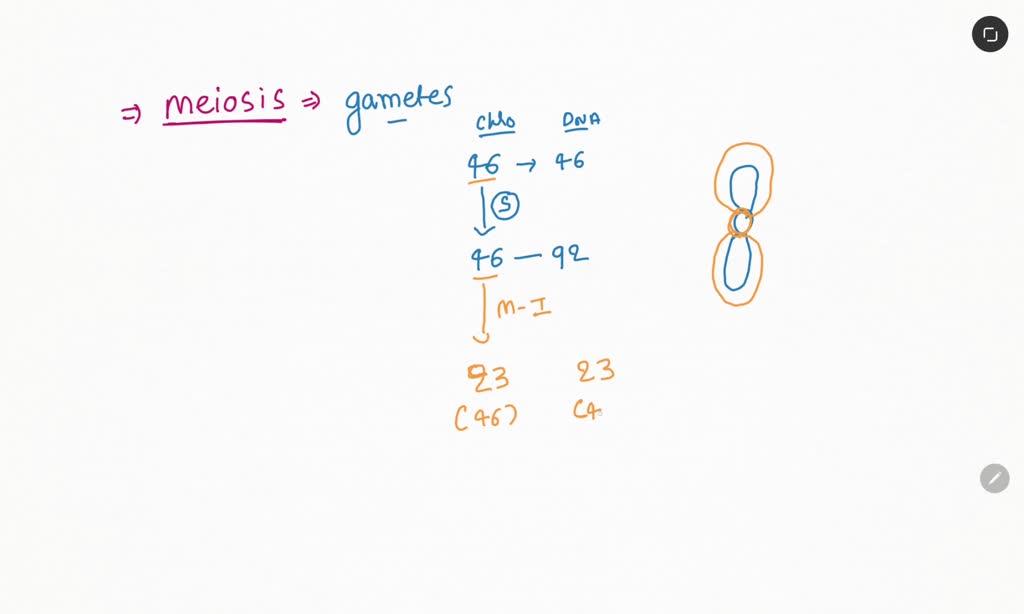 ⇒ meiosis ⇒ gametes
Chlo DNA
46 → 46
S
46 — 92
M-I
23 23
(46) (4